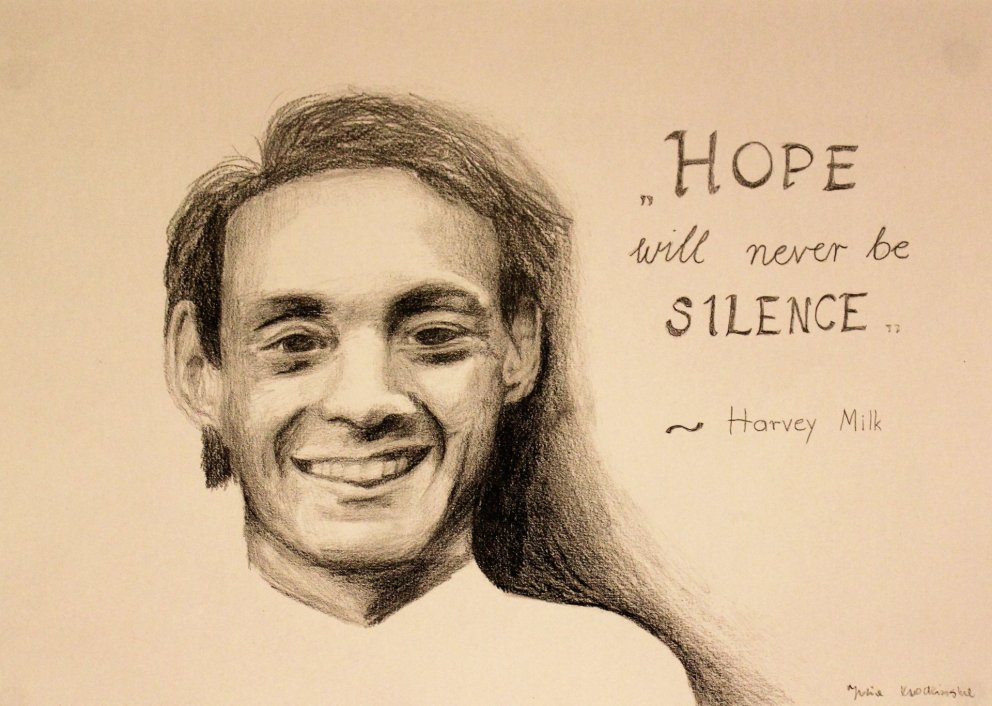 „HOPE
will never be
S1LENCE„
~ Harvey Milk